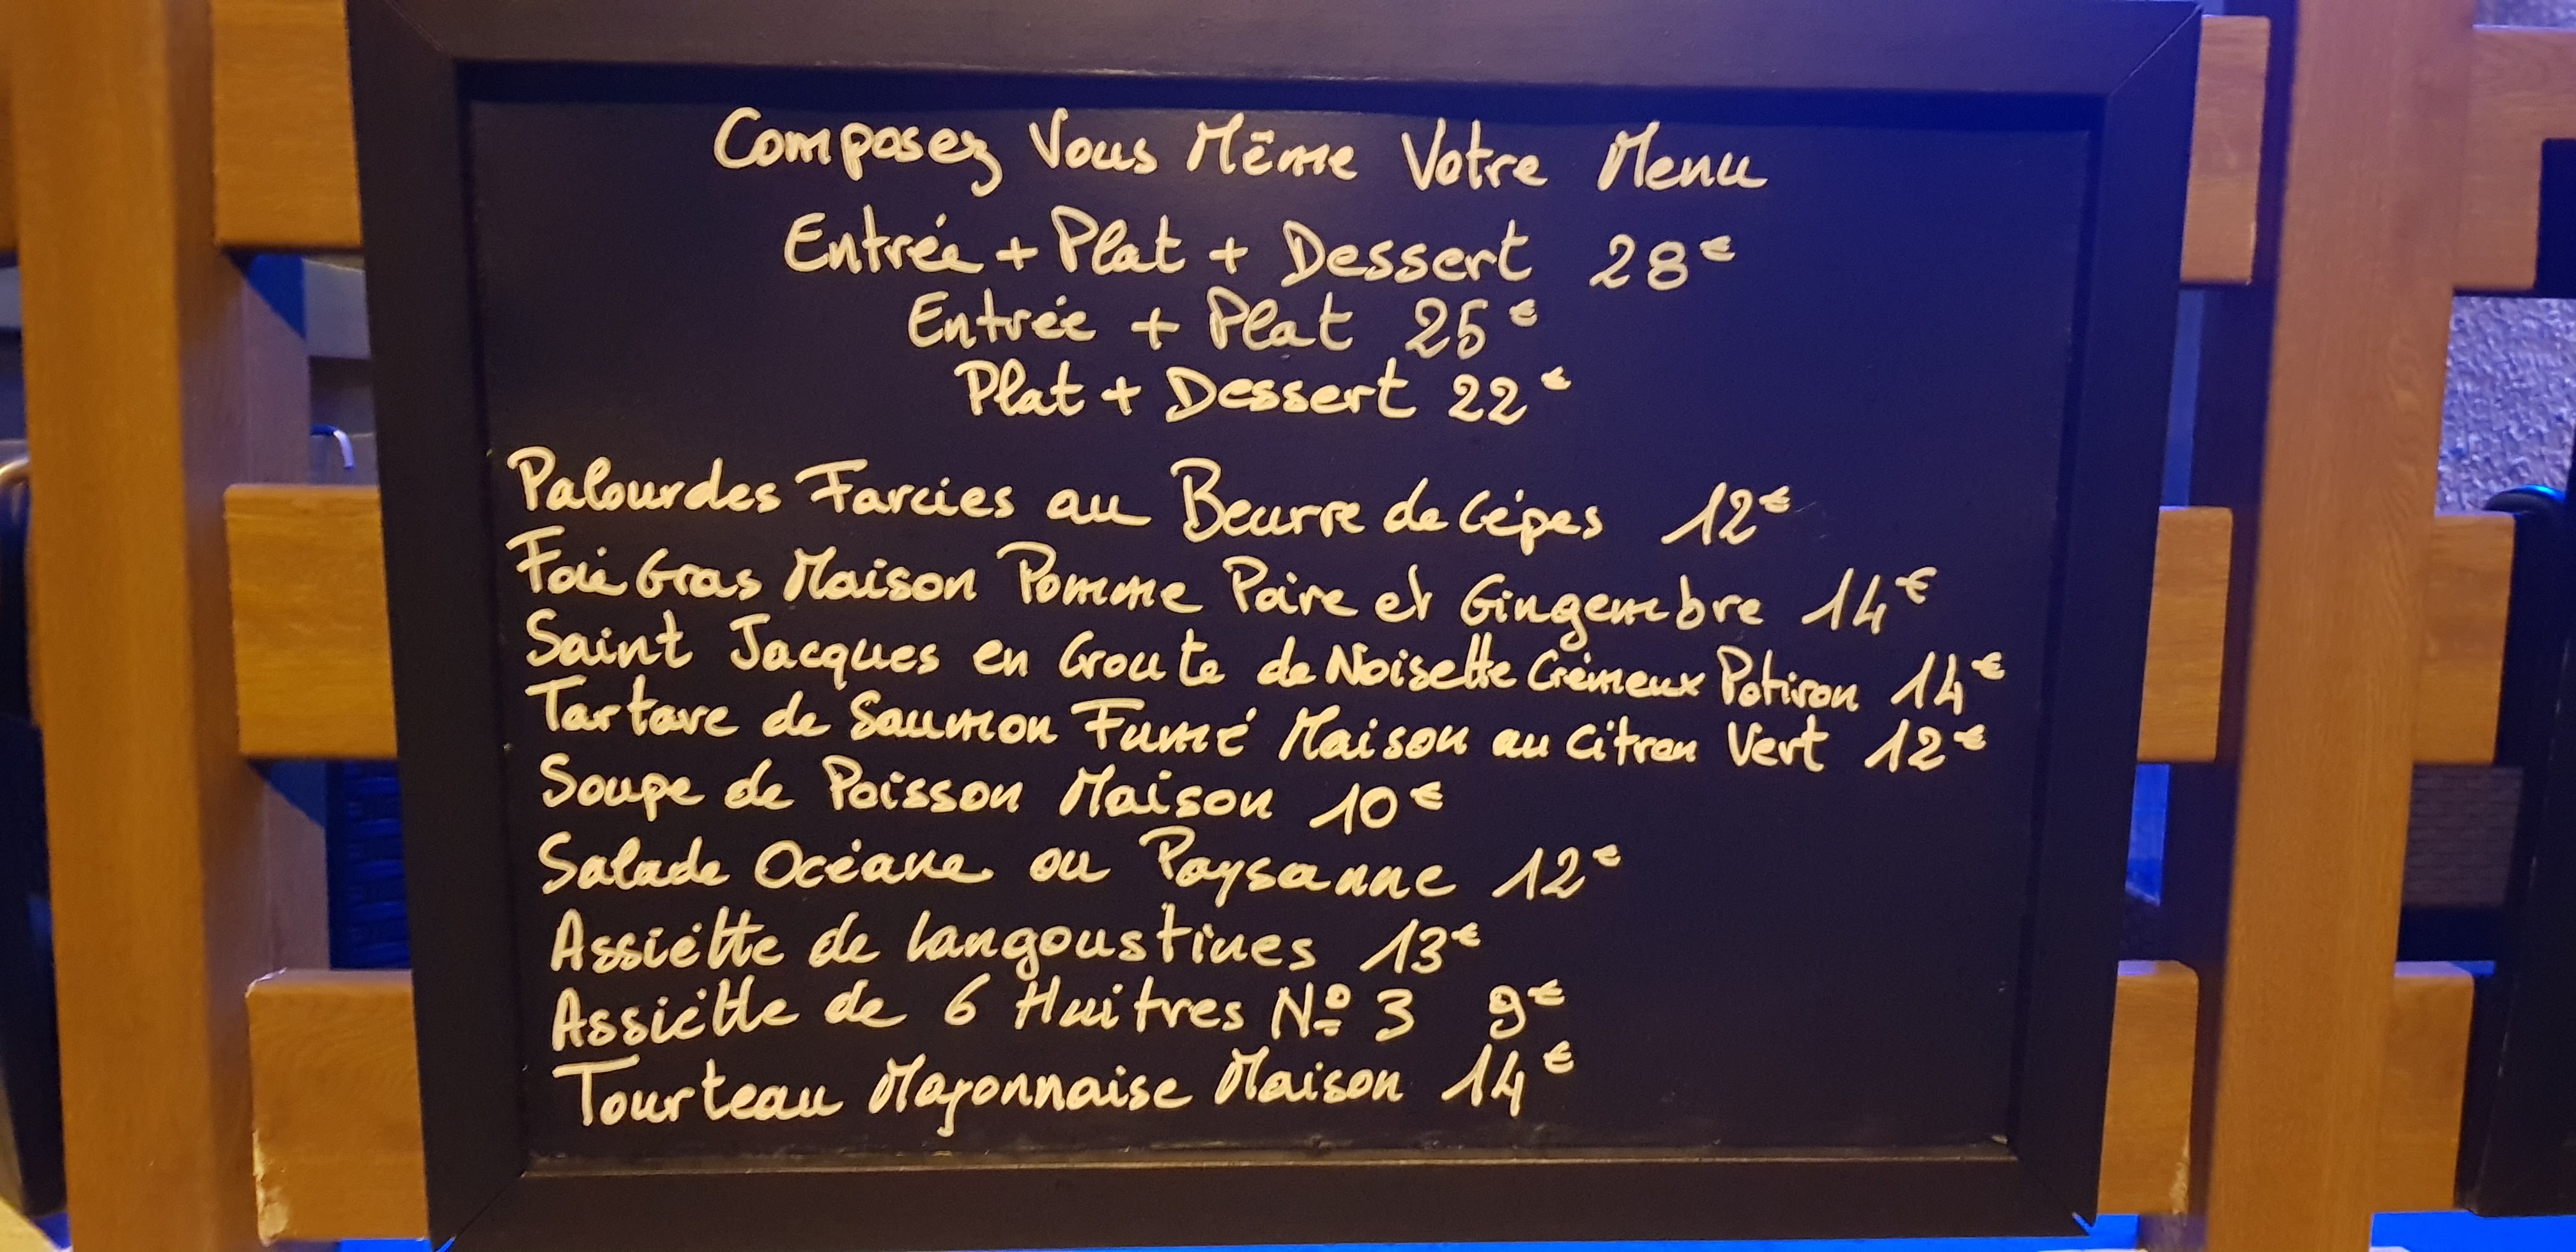 Composez Vous Même Votre Menu
Entrée + Plat + Dessert 28€
Entrée + Plat 25€
Plat + Dessert 22€
Palourdes Farcies au Beurre de Cépes 12€
Foie Gras Maison Pomme Poire et Gingembre 14€
Saint Jacques en Croute de Noisette Crémeux Potiron 14€
Tartare de Saumon Fumé Maison au Citron Vert 12€
Soupe de Poisson Maison 10€
Salade Océane ou Paysanne 12€
Assiétte de Langoustines 13€
Assiétte de 6 Huitres Nº 3 9€
Tourteau Mayonnaise Maison 14€